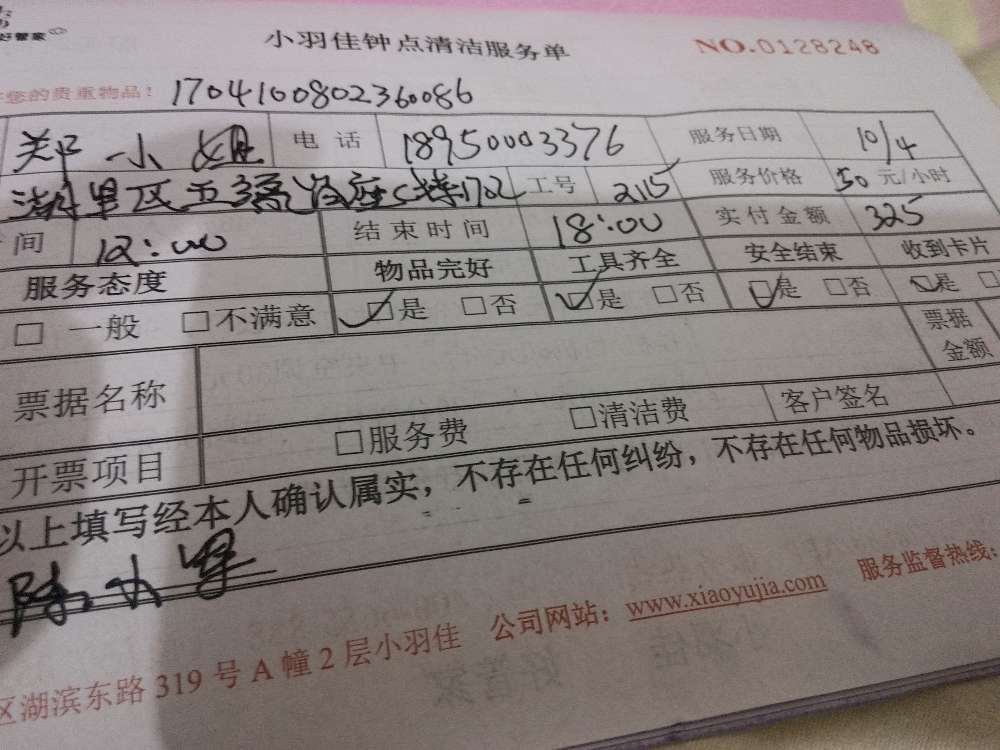 好管家
小羽佳钟点清洁服务单 NO.0128248
您的贵重物品! 1704100802360086
郑小姐 电话 18950003376 服务日期 10/4
湖里区 1702 工号 2115 服务价格 50 元/小时
间 12:00 结束时间 18:00 实付金额 325
服务态度 物品完好 工具齐全 安全结束 收到卡片
□ 一般 □不满意 ☑是 □否 ☑是 □否 ☑是 □否 ☑是 □
票据名称 票据金额
开票项目 □服务费 □清洁费 客户签名
以上填写经本人确认属实,不存在任何纠纷,不存在任何物品损坏。
区湖滨东路 319 号 A 幢 2 层小羽佳 公司网站:www.xiaoyujia.com 服务监督热线: